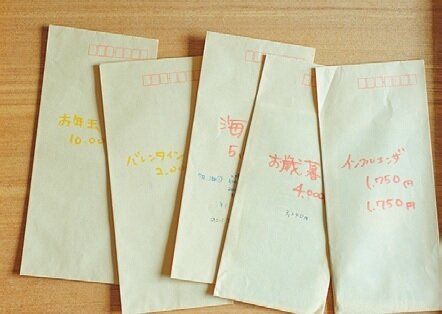 お年玉
10.00
バレンタイン
2.00
海
5
お歳暮
4.000
インフルエンザ
1.750円
1.750円